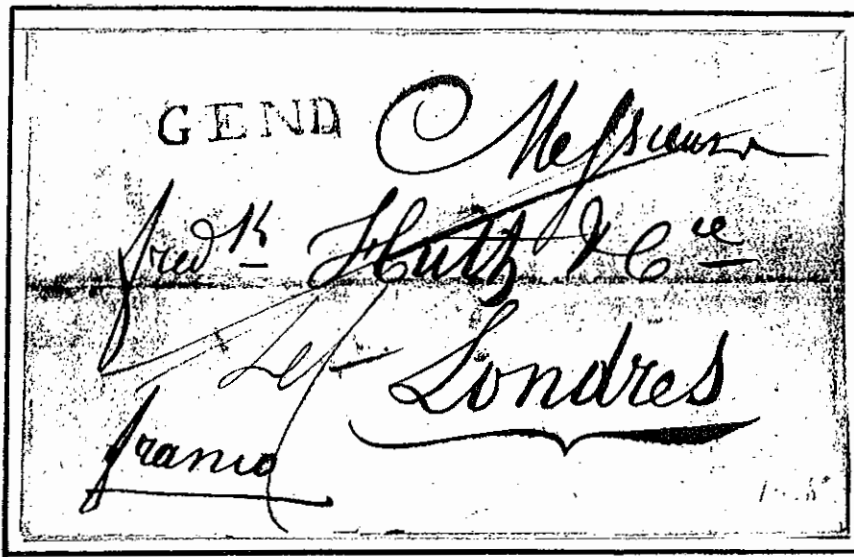 GEND
Messieurs
fred.k Huth & Cie
Londres
franco